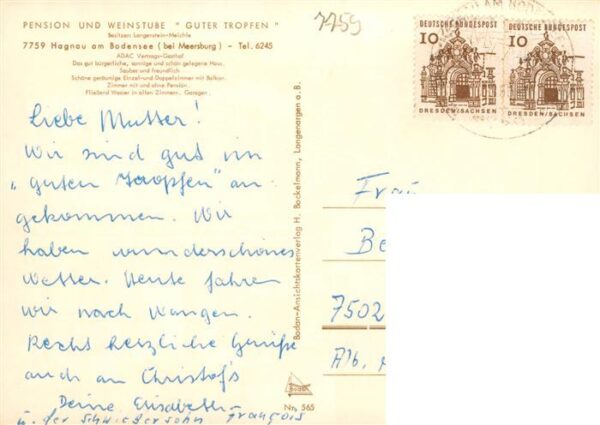 PENSION UND WEINSTUBE " GUTER TROPFEN "
Besitzer: Langenstein-Meichle
7759 Hagnau am Bodensee ( bei Meersburg ) - Tel. 6245
ADAC Vertrags-Gasthof.
Das gut bürgerliche, sonnige und schön gelegene Haus.
Sauber und freundlich
Schöne geräumige Einzel-und Doppelzimmer mit Balkon.
Zimmer mit und ohne Pension.
Fließend Wasser in allen Zimmern. Garagen.
7759
DEUTSCHE BUNDESPOST
10
DRESDEN/SACHSEN
DEUTSCHE BUNDESPOST
10
DRESDEN/SACHSEN
Liebe Mutter!
Wir sind gut im
"guten Tropfen" an-
gekommen. Wir
haben wunderschönes
Wetter. Heute fahren
wir nach Wangen.
Recht herzliche Grüße
auch an Christof's
Deine Elisabeth
u. der Schwiegersohn François
Bodan-Ansichtskartenverlag H. Bockelmann, Langenargen a. B.
Bodan
Nr. 565
Frau
Be
7502
Alb.